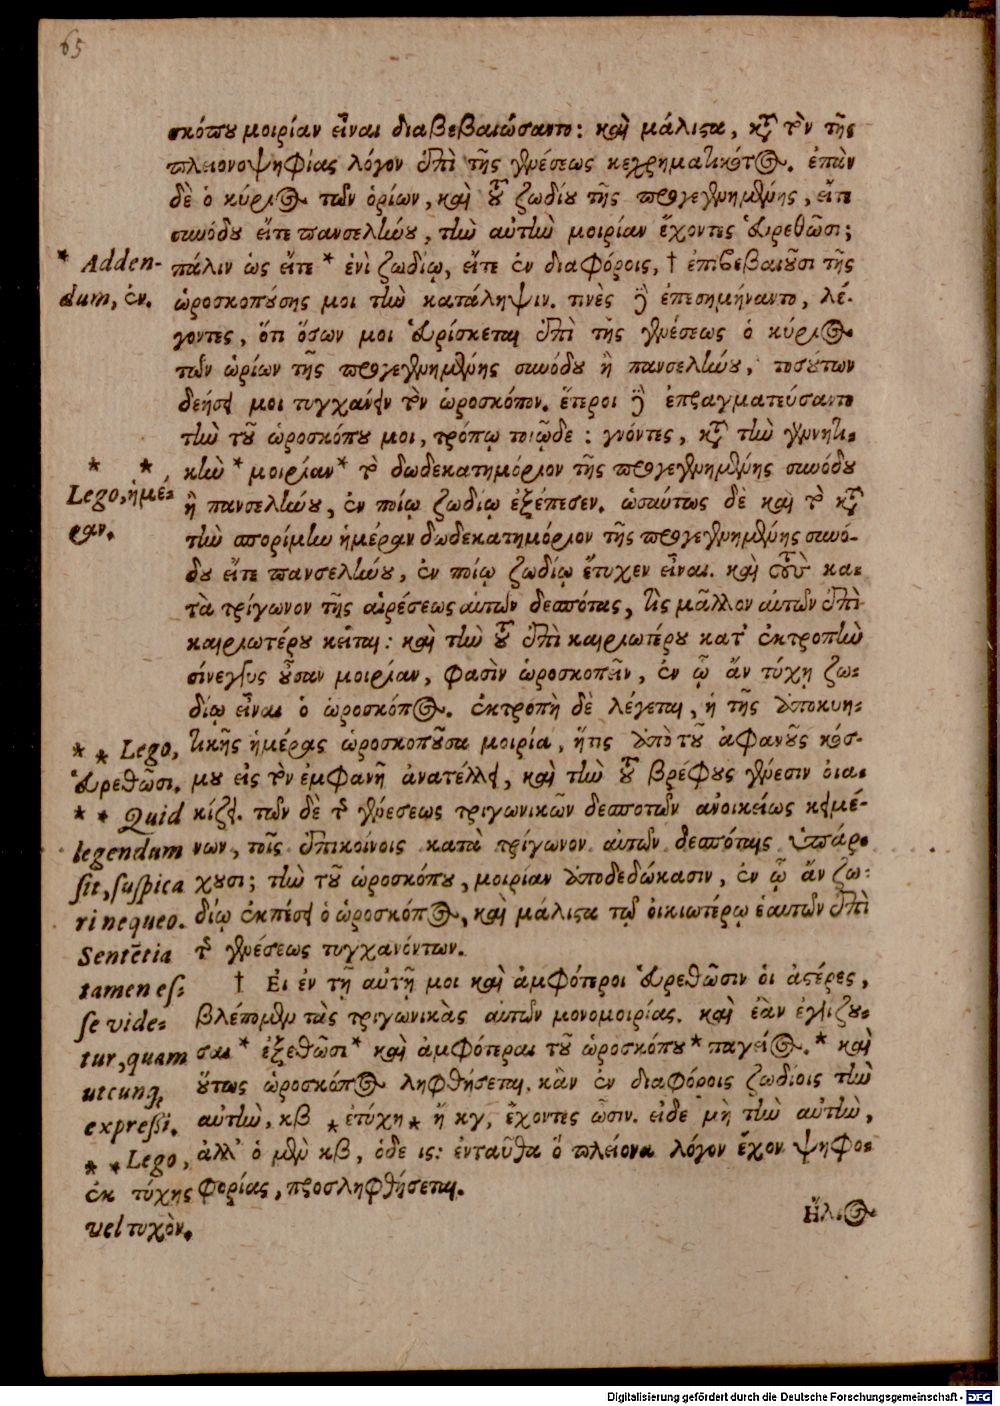 65
σκόπου μοιρίαν εἶναι διαβεβαιώσαντο: καὶ μάλιστα, κατὰ τὸν τῆς
πλειονοψηφίας λόγον ἐπὶ τῆς γενέσεως κεχρηματικότος. ἐπὰν
δὲ ὁ κύριος τῶν ὁρίων, καὶ τοῦ ζωδίου τῆς προγεγενημένης, εἴτε
συνόδου εἴτε πανσελήνου, τὴν αὐτὴν μοιρίαν ἔχοντες εὑρεθῶσι;
πάλιν ὡς εἴτε * ἑνὶ ζωδίῳ, εἴτε ἐν διαφόροις, † ἐπιβεβαιοῦσι τῆς
ὡροσκοπούσης μοι τὴν κατάληψιν. τινὲς δὲ ἐπεσημήναντο, λέ-
γοντες, ὅτι ὅσων μοι εὑρίσκεται ἐπὶ τῆς γενέσεως ὁ κύριος
τῶν ὡρίων τῆς προγεγενημένης συνόδου ἢ πανσελήνου, τοσούτων
δεήσει μοι τυγχανεῖν τὸν ὡροσκόπον. ἕτεροι δὲ ἐπραγματεύσαντο
τὴν τοῦ ὡροσκόπου μοι, τρόπῳ τοιῷδε: γνόντες, κατὰ τὴν γενητι-
κὴν * μοιρίαν * τὸ δωδεκατημόριον τῆς προγεγενημένης συνόδου
ἢ πανσελήνου, ἐν ποίῳ ζωδίῳ ἐξέπεσεν. ὡσαύτως δὲ καὶ τὸ κατὰ
τὴν σπορίμην ἡμέραν δωδεκατημόριον τῆς προγεγενημένης συνό-
δου εἴτε πανσελήνου, ἐν ποίῳ ζωδίῳ ἔτυχεν εἶναι. καὶ τοὺς κα-
τὰ τρίγωνον τῆς αἱρέσεως αὐτῶν δεσπότας, τὶς μᾶλλον αὐτῶν ἐπὶ
καιριωτέρου κεῖται: καὶ τὴν τοῦ ἐπὶ καιριωτέρου κατ' ἐκτροπὴν
σίνεγγυς οὖσαν μοιρίαν, φασὶν ὡροσκοπεῖν, ἐν ᾧ ἄν τύχῃ ζω-
δίῳ εἶναι ὁ ὡροσκόπος. ἐκτροπὴ δὲ λέγεται, ἡ τῆς ἀποκυη-
τικῆς ἡμέρας ὡροσκοποῦσα μοιρία, ἥτις ἀπὸ τοῦ ἀφανοῦς κόσ-
μου εἰς τὸν ἐμφανῆ ἀνατέλλει, καὶ τὴν τοῦ βρέφους γένεσιν οἰα-
κίζει. τῶν δὲ τῆς γενέσεως τριγωνικῶν δεσποτῶν ἀνοικείως κειμέ-
νων, τοῖς ἐπικοίνοις κατὰ τρίγωνον αὐτῶν δεσπόταις ὑπάρ-
χουσι; τὴν τοῦ ὡροσκόπου, μοιρίαν ἀποδεδώκασιν, ἐν ᾧ ἄν ζω-
δίῳ ἐκπέσει ὁ ὡροσκόπος, καὶ μάλιστα τῷ οἰκιωτέρῳ ἑαυτῶν ἐπὶ
τῆς γενέσεως τυγχανόντων.
† Εἰ ἐν τῇ αὐτῇ μοι καὶ ἀμφότεροι εὑρεθῶσιν οἱ ἀστέρες,
βλέπομεν τὰς τριγωνικὰς αὐτῶν μονομοιρίας. καὶ ἐὰν ἐγγίζου-
σαι * ἐξεθῶσι * καὶ ἀμφότεραι τοῦ ὡροσκόπου * παγείος. * καὶ
οὕτως ὡροσκόπος ληφθήσεται. κἂν ἐν διαφόροις ζωδίοις τὴν
αὐτὴν, κβ * ετύχη * ἤ κγ, ἔχοντες ὦσιν. εἰδε μὴ τὴν αὐτὴν,
ἀλλ' ὁ μὲν κβ, ὁδε ις: ἐνταῦθα ὅ πλείονα λόγον ἔχον ψηφο-
φορίας, προσληφθήσεται.
Ηλιος
* Adden-
dum, ἐν.
* *
Lego, ἡμέ-
ραν.
* * Lego,
εὑρεθῶσι.
* * Quid
legendum
sit, suspica
ri nequeo.
Sentētia
tamen es-
se vide-
tur, quam
utcunq;
expressi.
* * Lego,
ἐκ τύχης
vel τυχὸν.
Digitalisierung gefördert durch die Deutsche Forschungsgemeinschaft - DFG